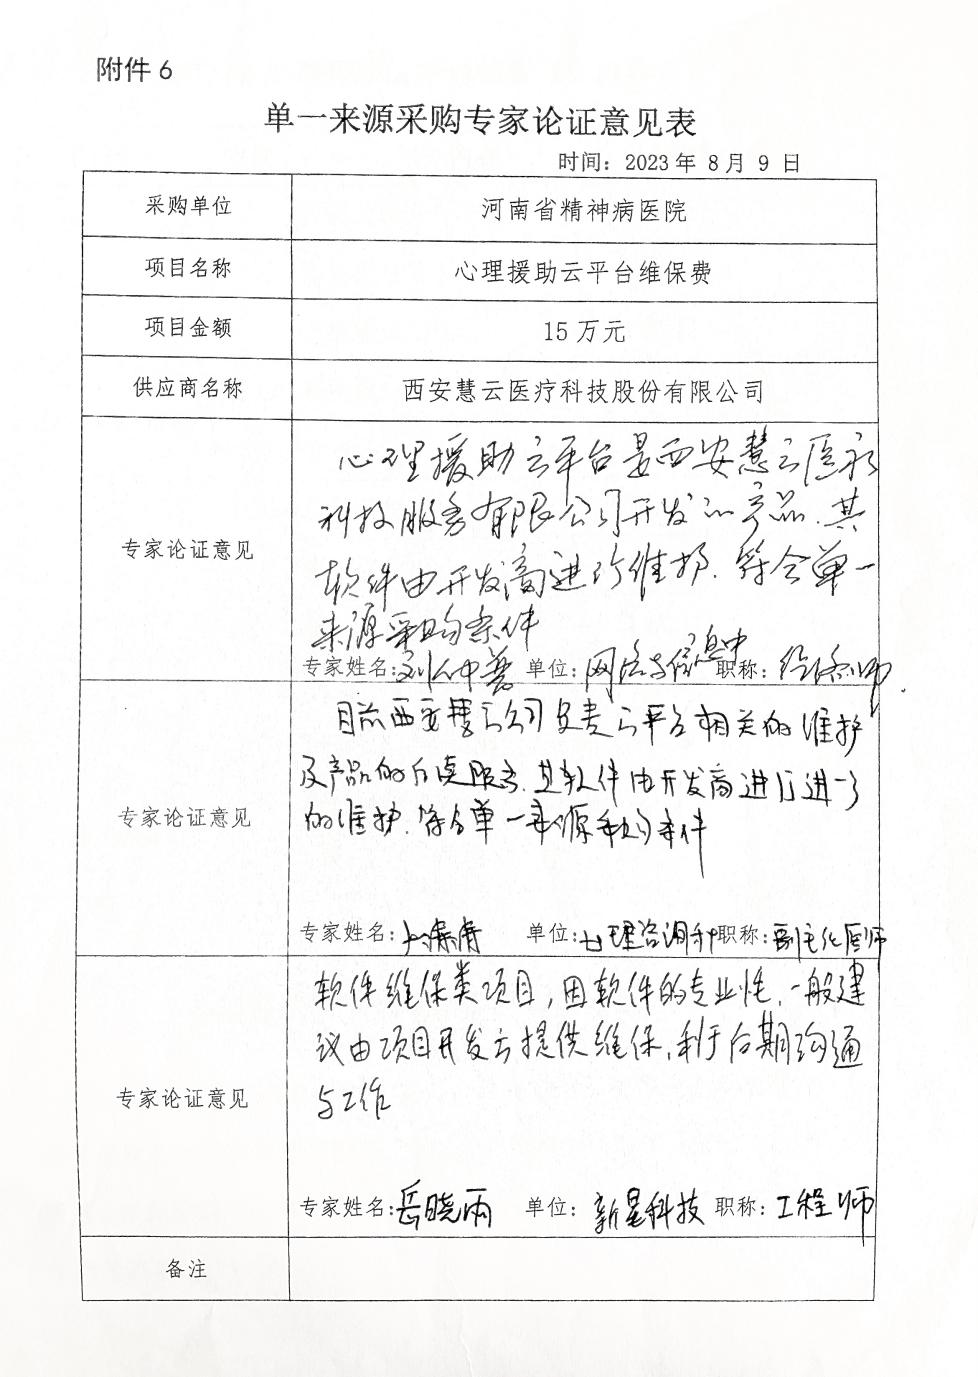 附件 6
单一来源采购专家论证意见表
时间：2023 年 8 月 9 日
采购单位 河南省精神病医院
项目名称 心理援助云平台维保费
项目金额 15 万元
供应商名称 西安慧云医疗科技股份有限公司
专家论证意见
心理援助云平台是西安慧云医疗
科技服务有限公司开发的产品，其
软件由开发商进行维护，符合单一
来源采购条件
专家姓名： 单位：网络与信息中 职称：
专家论证意见
目前西安慧云公司负责云平台相关的维护
及产品的后续服务，其软件由开发商进行进一步
的维护，符合单一来源采购条件
专家姓名： 单位：心理咨询科 职称：副主任医师
专家论证意见
软件维保类项目，因软件的专业性，一般建
议由项目开发方提供维保，利于后期沟通
与工作
专家姓名：岳晓雨 单位：新星科技 职称：工程师
备注